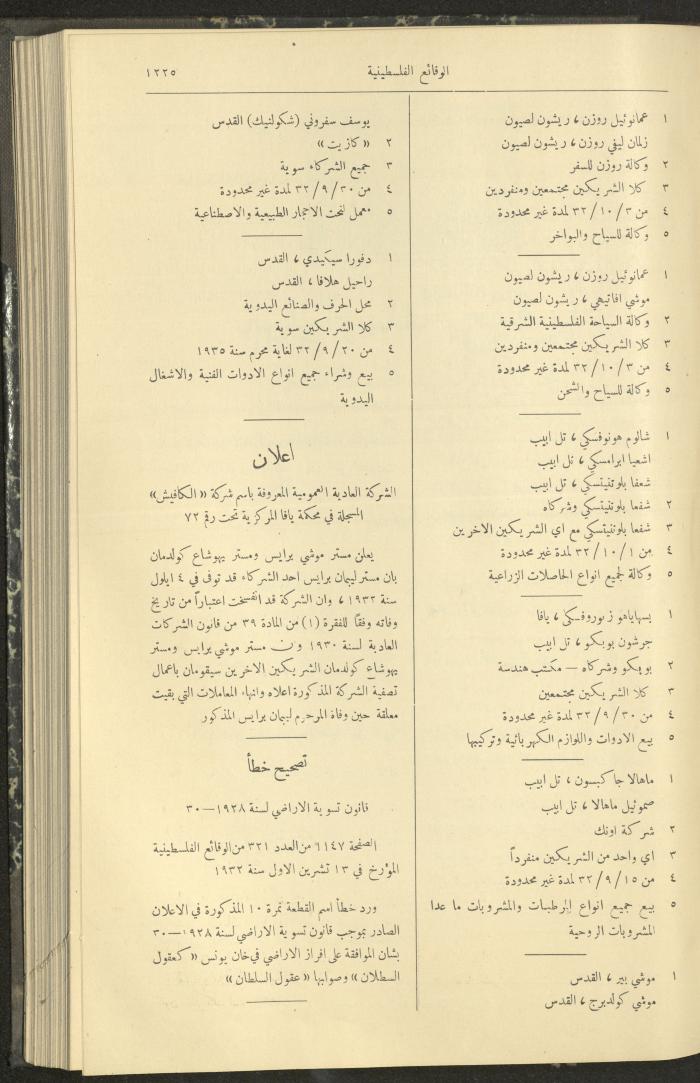 الوقائع الفلسطينية
١٢٢٥
١ عمانوئيل روزن، ريشون لصيون
زلمان ليفي روزن، ريشون لصيون
٢ وكالة روزن للسفر
٣ كلا الشريكين مجتمعين ومنفردين
٤ من ٣/١٠/٣٢ لمدة غير محدودة
٥ وكالة للسياح والبواخر
١ عمانوئيل روزن، ريشون لصيون
موشي افاتيهي، ريشون لصيون
٢ وكالة السياحة الفلسطينية الشرقية
٣ كلا الشريكين مجتمعين ومنفردين
٤ من ٣/١٠/٣٢ لمدة غير محدودة
٥ وكالة للسياح والشحن
١ شالوم هونوفسكي، تل ابيب
اشعيا ابرامسكي، تل ابيب
شفعا بلوتنيتسكي، تل ابيب
٢ شفعا بلوتنيتسكي وشركاه
٣ شفعا بلوتنيتسكي مع اي الشريكين الاخرين
٤ من ١/١٠/٣٢ لمدة غير محدودة
٥ وكالة لجميع انواع الحاصلات الزراعية
١ يسهاياهو زبوروفسكي، يافا
جرشون بوبكو، تل ابيب
٢ بوبكو وشركاه — مكتب هندسة
٣ كلا الشريكين مجتمعين
٤ من ٣٠/٩/٣٢ لمدة غير محدودة
٥ بيع الادوات واللوازم الكهربائية وتركيبها
١ ماهالا جاكبسون، تل ابيب
صموئيل ماهالا، تل ابيب
٢ شركة اونك
٣ اي واحد من الشريكين منفرداً
٤ من ١٥/٩/٣٢ لمدة غير محدودة
٥ بيع جميع انواع المرطبات والمشروبات ما عدا
المشروبات الروحية
١ موشي بير، القدس
موشي كولدبرج، القدس
يوسف سفروني (شكولنيك) القدس
٢ «كازيت»
٣ جميع الشركاء سوية
٤ من ٣٠/٩/٣٢ لمدة غير محدودة
٥ معمل لنحت الاحجار الطبيعية والاصطناعية
١ دفورا سيكيدي، القدس
راحيل هلاقا، القدس
٢ محل الحرف والصنائع اليدوية
٣ كلا الشريكين سوية
٤ من ٢٠/٩/٣٢ لغاية محرم سنة ١٩٣٥
٥ بيع وشراء جميع انواع الادوات الفنية والاشغال
اليدوية
اعلان
الشركة العادية العمومية المعروفة باسم شركة «الكافيش»
المسجلة في محكمة يافا المركزية تحت رقم ٧٢
يعلن مستر موشي برايس ومستر يهوشاع كولدمان
بان مستر ليبمان برايس احد الشركاء قد توفي في ٤ ايلول
سنة ١٩٣٢، وان الشركة قد انفسخت اعتباراً من تاريخ
وفاته وفقاً للفقرة (١) من المادة ٣٩ من قانون الشركات
العادية لسنة ١٩٣٠ وان مستر موشي برايس ومستر
يهوشاع كولدمان الشريكين الاخرين سيقومان باعمال
تصفية الشركة المذكورة اعلاه وانهاء المعاملات التي بقيت
معلقة حين وفاة المرحوم ليبمان برايس المذكور
تصحيح خطأ
قانون تسوية الاراضي لسنة ١٩٢٨—٣٠
الصفحة ١١٤٧ من العدد ٣٢١ من الوقائع الفلسطينية
المؤرخ في ١٣ تشرين الاول سنة ١٩٣٢
ورد خطأ اسم القطعة نمرة ١٠ المذكورة في الاعلان
الصادر بموجب قانون تسوية الاراضي لسنة ١٩٢٨—٣٠
بشان الموافقة على افراز الاراضي في خان يونس «كعقول
السطلان» وصوابها «عقول السلطان»